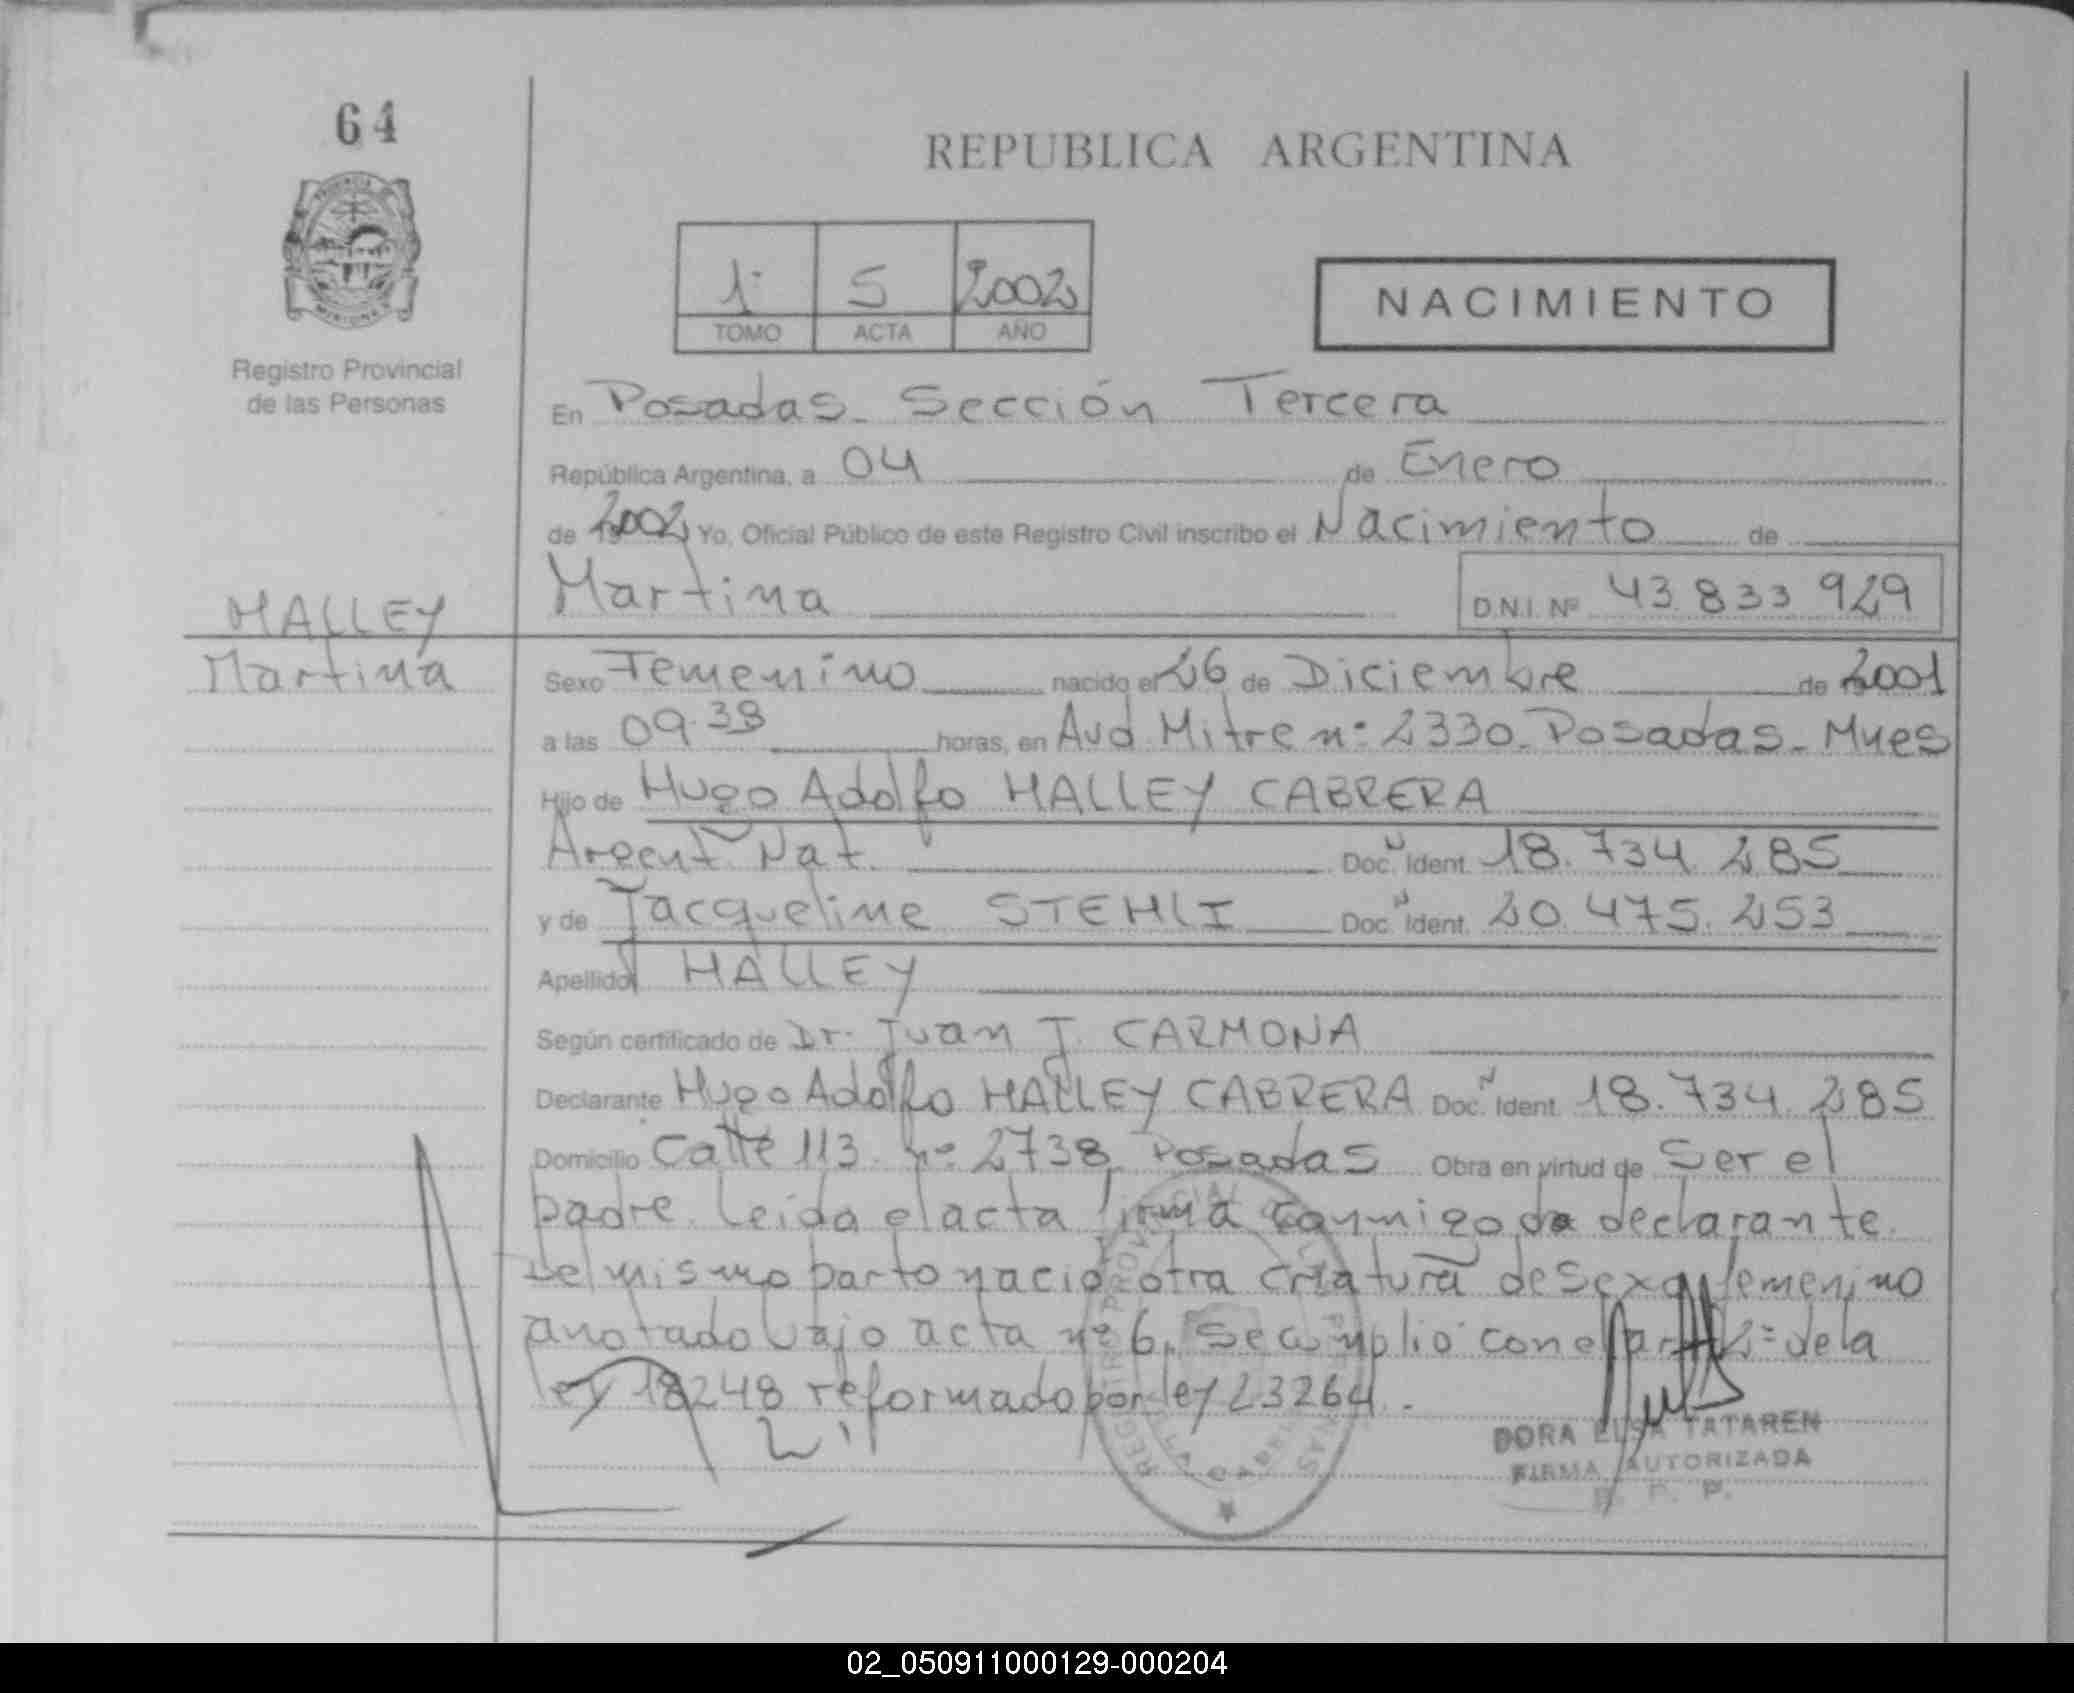 64
REPUBLICA ARGENTINA
1º 5 2002
TOMO ACTA AÑO
NACIMIENTO
Registro Provincial
de las Personas
En Posadas - Sección Tercera
República Argentina, a 04 de Enero
de 2002 Yo, Oficial Público de este Registro Civil inscribo el Nacimiento de
Martina D.N.I. Nº 43.833.929
HALLEY
Martina
Sexo Femenino nacido el 26 de Diciembre de 2001
a las 09.38 horas, en Avd Mitre nº 2330 - Posadas - Mnes
Hijo de Hugo Adolfo HALLEY CABRERA
Argent Nat. Doc. Ident. 18.734.285
y de Jacqueline STEHLI Doc. Ident. 20.475.253
Apellido HALLEY
Según certificado de Dr. Juan J. CARMONA
Declarante Hugo Adolfo HALLEY CABRERA Doc. Ident. 18.734.285
Domicilio Calle 113 nº 2738 Posadas Obra en virtud de Ser el
padre. Leida el acta firma conmigo declarante.
Del mismo parto nació otra criatura de sexo femenino
anotado bajo acta nº 6. Se cumplió con el art 2º de la
ley 18248 reformado por ley 23264.
DORA ELSA TATAREN
FIRMA AUTORIZADA
R. P. P.
02_050911000129-000204